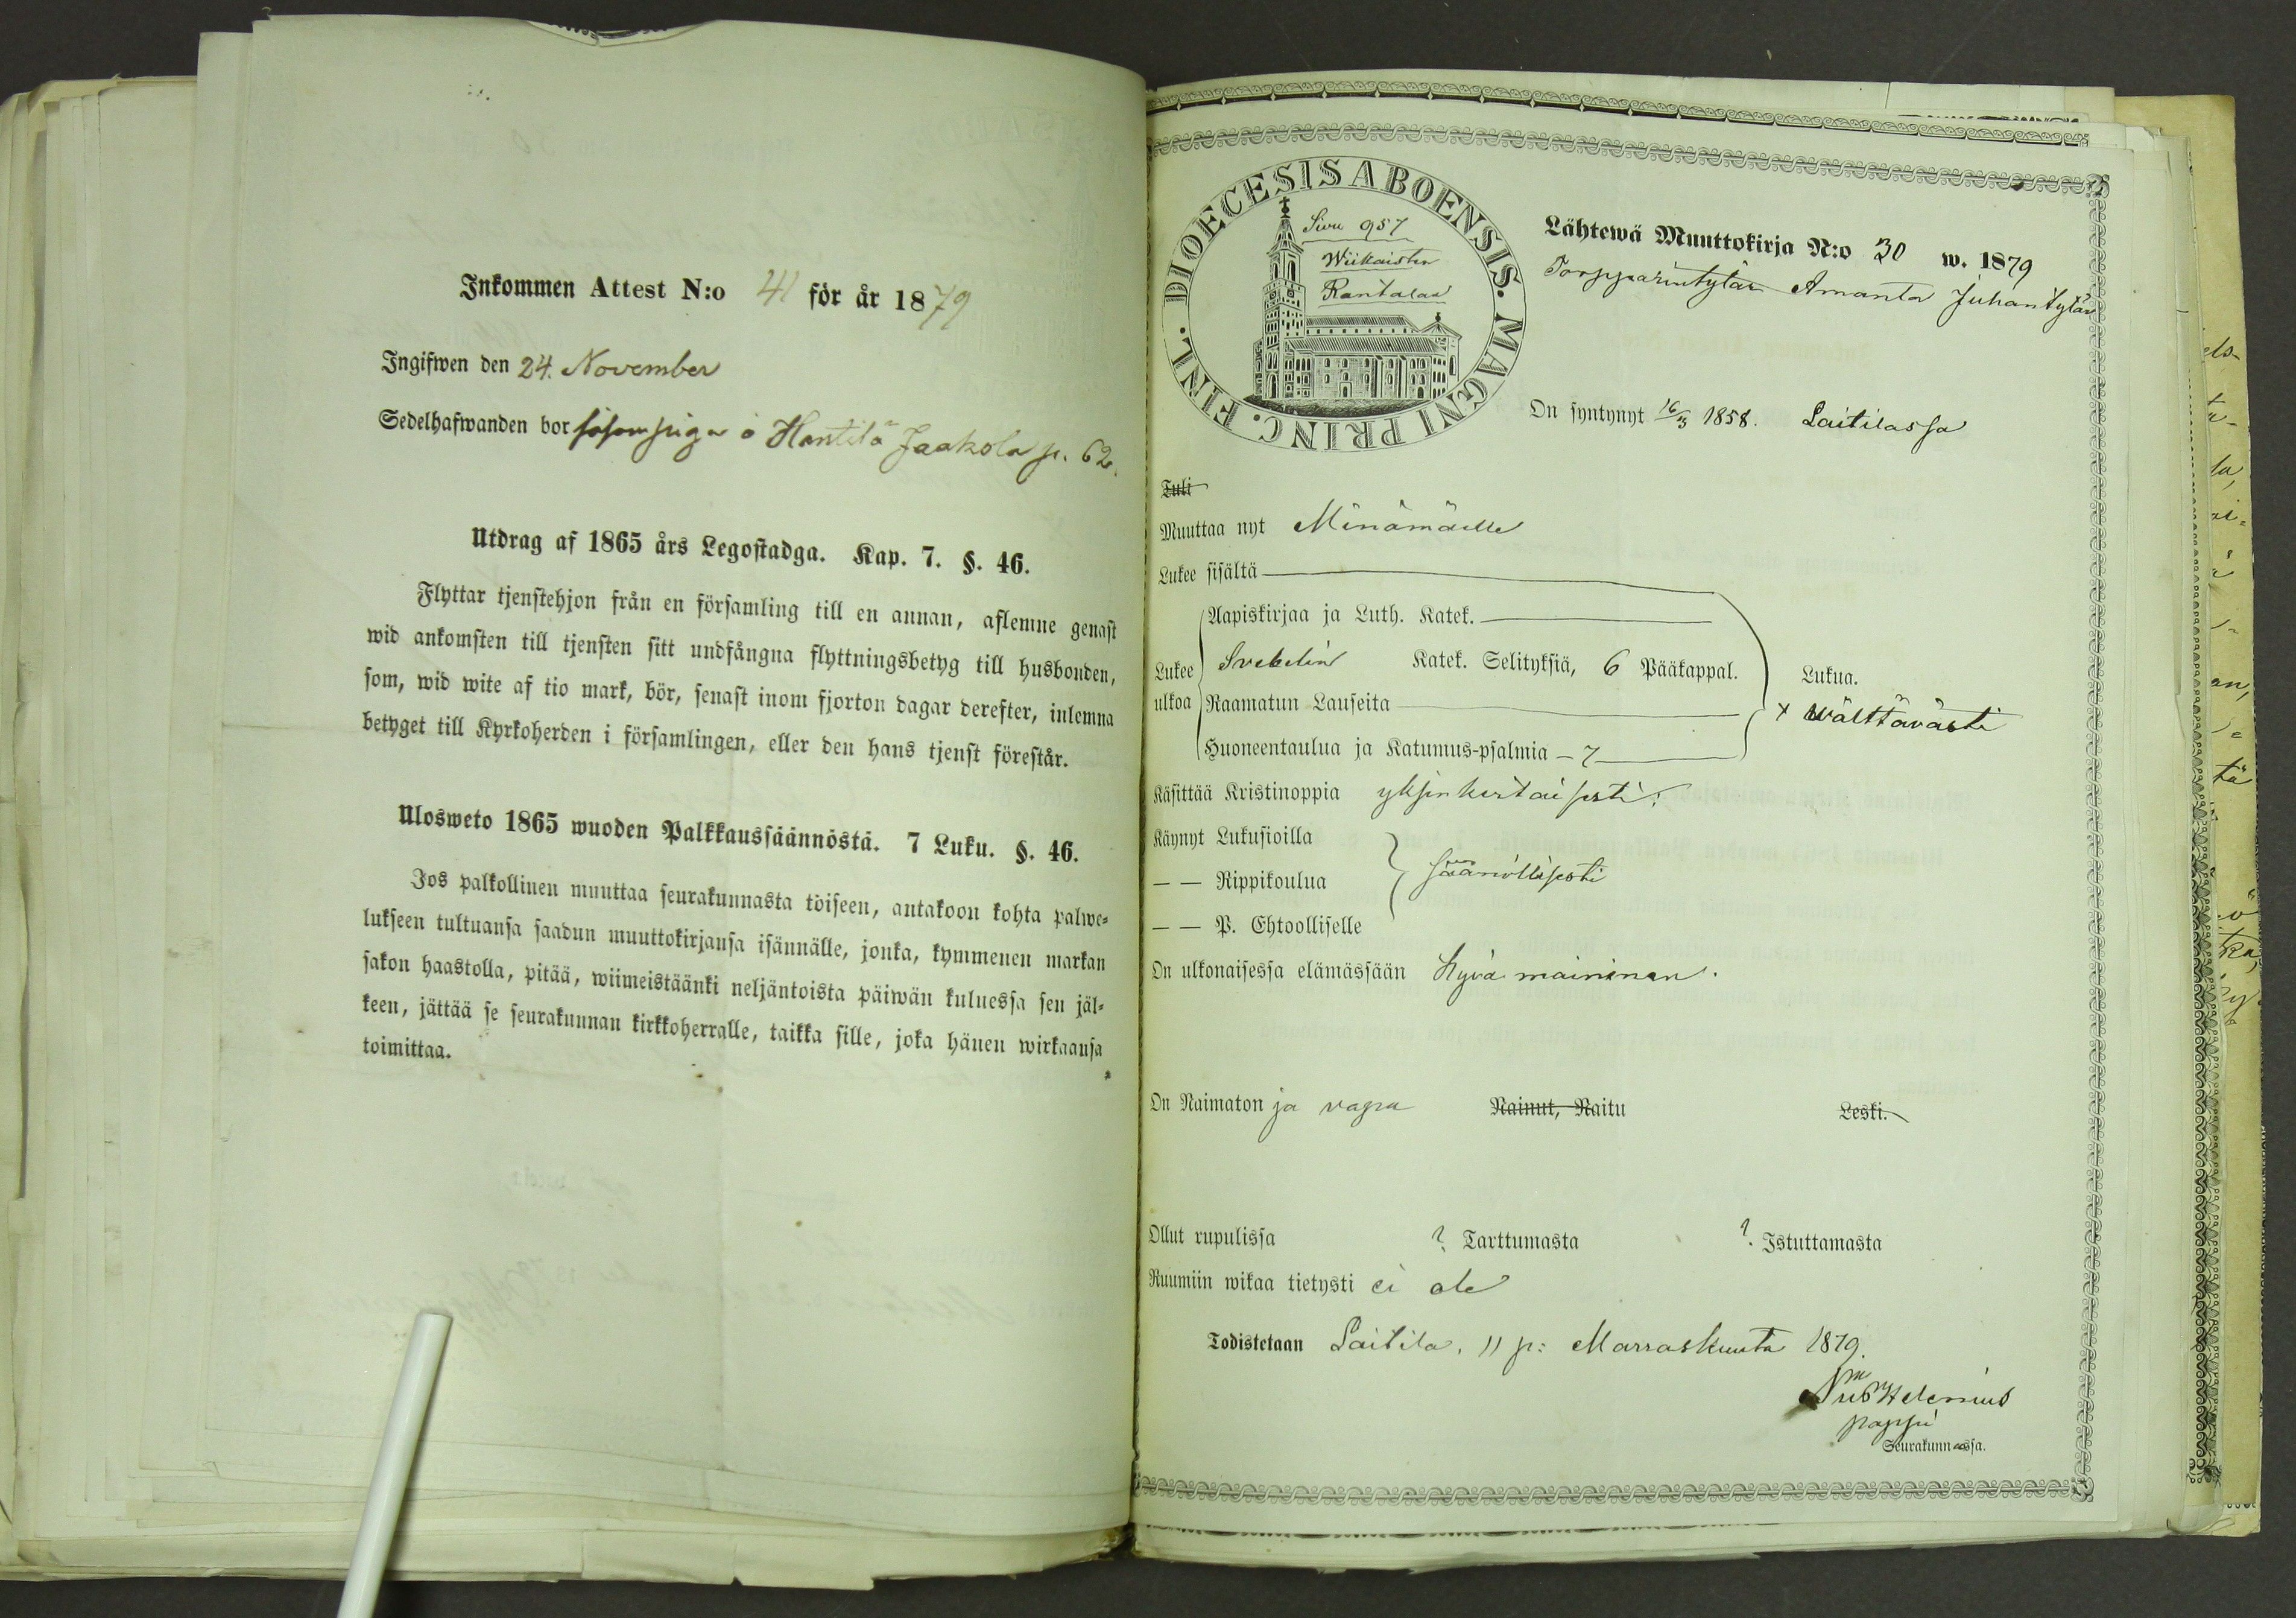 Inkommen Attest N:o 41 för år 1879
Ingifwen den 24. November
Sedelhafwanden bor såsom piga å Hantila Jaakola p. 62.
Utdrag af 1865 års Legostadga. Kap. 7. §. 46.
Flyttar tjenstehjon från en församling till en annan, aflemne genast
wid ankomsten till tjensten sitt undfångna flyttningsbetyg till husbonden,
som, wid wite af tio mark, bör, senast inom fjorton dagar derefter, inlemna
betyget till Kyrkoherden i församlingen, eller den hans tjenst förestår.
Ulosweto 1865 wuoden Palkkaussäännöstä. 7 Luku. §. 46.
Jos palkollinen muuttaa seurakunnasta toiseen, antakoon kohta palwe-
lukseen tultuansa saadun muuttokirjansa isännälle, jonka, kymmenen markan
sakon haastolla, pitää, wiimeistäänki neljäntoista päiwän kuluessa sen jäl-
keen, jättää se seurakunnan kirkkoherralle, taikka sille, joka hänen wirkaansa
toimittaa.
DIOECESIS ABOENSIS. MAGNI PRINC. FINL.
Sivu 957
Wiikaisten
Rantalan
Lähtewä Muuttokirja N:o 30 w. 1879
Torpparintytär Amanta Juhantytär
On syntynyt 16/3 1858. Laitilassa
Tuli
Muuttaa nyt Minämäelle
Lukee sisältä
Aapiskirjaa ja Luth. Katek.
Lukee ulkoa
Svebelin Katek. Selityksiä, 6 Pääkappal.
Lukua.
Raamatun Lauseita
x wälttävästi
Huoneentaulua ja Katumus-psalmia - 7
Käsittää Kristinoppia yksinkertaisesti.
Käynyt Lukusioilla
— — Rippikoulua säänöllisesti
— — P. Ehtoolliselle
On ulkonaisessa elämässään hyvä maininen.
On Naimaton ja vapa Nainut, Naitu Leski.
Ollut rupulissa ? Tarttumasta ? Istuttamasta
Ruumiin wikaa tietysti ei ole
Todistetaan Laitila, 11 p: Marraskuuta 1879.
Helenius
pappi
Seurakunnassa.